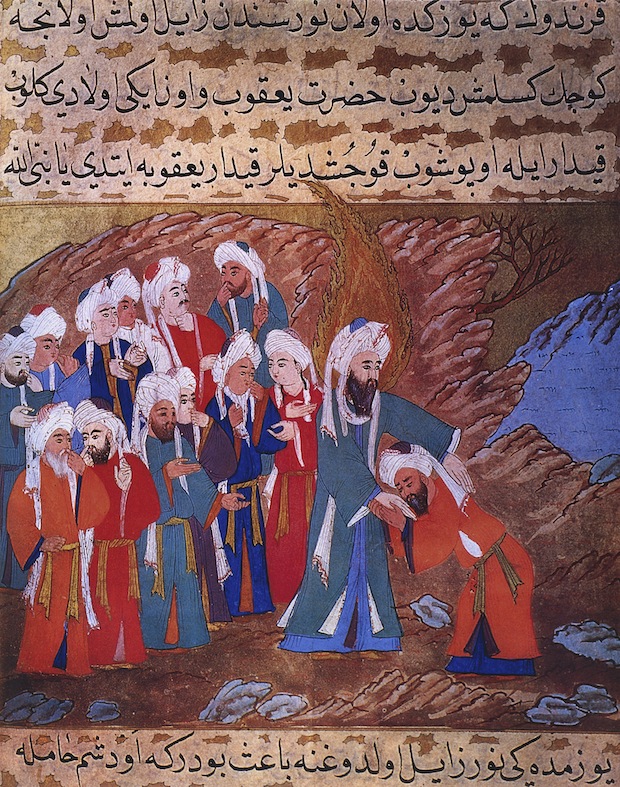 فرزندوك كه يوزكده اولان نور سندن زايل اولمش اولانجه
كوجك كسلمش ديوب حضرت يعقوب و اون ايكى اولادى كلوب
قيدار ايله اوپوشوب قوجشديلر قيدار يعقوبه ايتدى يا نبى الله
يوزمده كى نور زايل اولدوغنه باعث بودر كه اودشم حامله